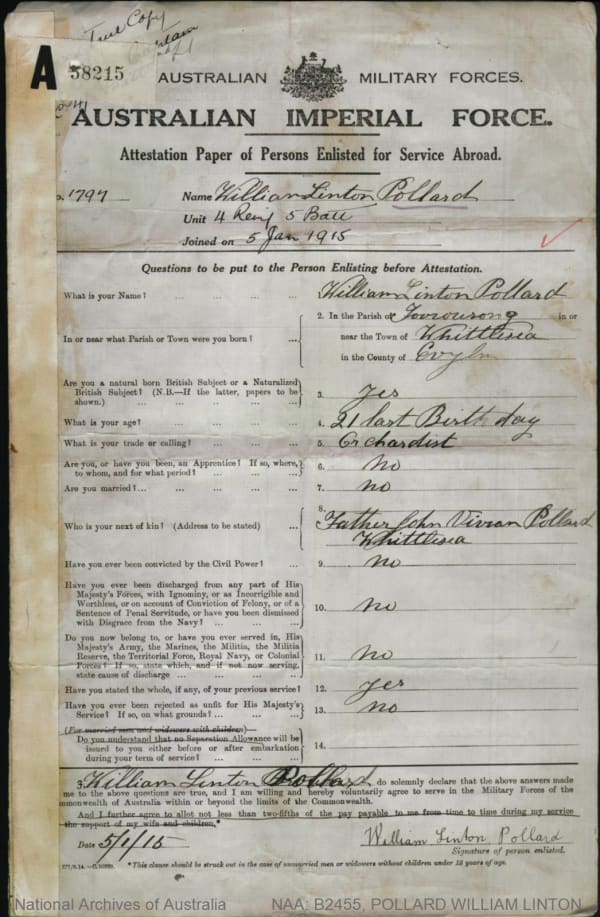 True Copy
A
58215
AUSTRALIAN MILITARY FORCES.
AUSTRALIAN IMPERIAL FORCE.
Attestation Paper of Persons Enlisted for Service Abroad.
o. 1797 Name William Linton Pollard
Unit 4 Reinf 5 Batt
Joined on 5 Jan 1915
Questions to be put to the Person Enlisting before Attestation.
What is your Name? ... ... ... ... William Linton Pollard
In or near what Parish or Town were you born? ...
2. In the Parish of in or
near the Town of Whittlesea
in the County of Evelyn
Are you a natural born British Subject or a Naturalized
British Subject? (N.B.—If the latter, papers to be
shown.) ... ... ... ...
3. Yes
What is your age? ... ... ... ... 4. 21 last Birthday
What is your trade or calling? ... ... ... 5. Orchardist
Are you, or have you been, an Apprentice? If so, where,
to whom, and for what period? ... ... ...
6. No
Are you married? ... ... ... ... 7. no
Who is your next of kin? (Address to be stated) ...
8. Father John Vivian Pollard
Whittlesea
Have you ever been convicted by the Civil Power? ... 9. no
Have you ever been discharged from any part of His
Majesty's Forces, with Ignominy, or as Incorrigible and
Worthless, or on account of Conviction of Felony, or of a
Sentence of Penal Servitude, or have you been dismissed
with Disgrace from the Navy? ... ... ...
10. no
Do you now belong to, or have you ever served in, His
Majesty's Army, the Marines, the Militia, the Militia
Reserve, the Territorial Force, Royal Navy, or Colonial
Forces? If so, state which, and if not now serving,
state cause of discharge ... ... ... ...
11. No
Have you stated the whole, if any, of your previous service? 12. yes
Have you ever been rejected as unfit for His Majesty's
Service? If so, on what grounds? ... ... ...
13. no
(For married men and widowers with children)
Do you understand that no Separation Allowance will be
issued to you either before or after embarkation
during your term of service? ... ... ...
14.
William Linton Pollard, do solemnly declare that the above answers made
me to the above questions are true, and I am willing and hereby voluntarily agree to serve in the Military Forces of the
mmonwealth of Australia within or beyond the limits of the Commonwealth.
And I further agree to allot not less than two-fifths of the pay payable to me from time to time during my service
the support of my wife and children.*
Date 5/1/15 William Linton Pollard
Signature of person enlisted.
*This clause should be struck out in the case of unmarried men or widowers without children under 18 years of age.
National Archives of Australia NAA: B2455, POLLARD WILLIAM LINTON